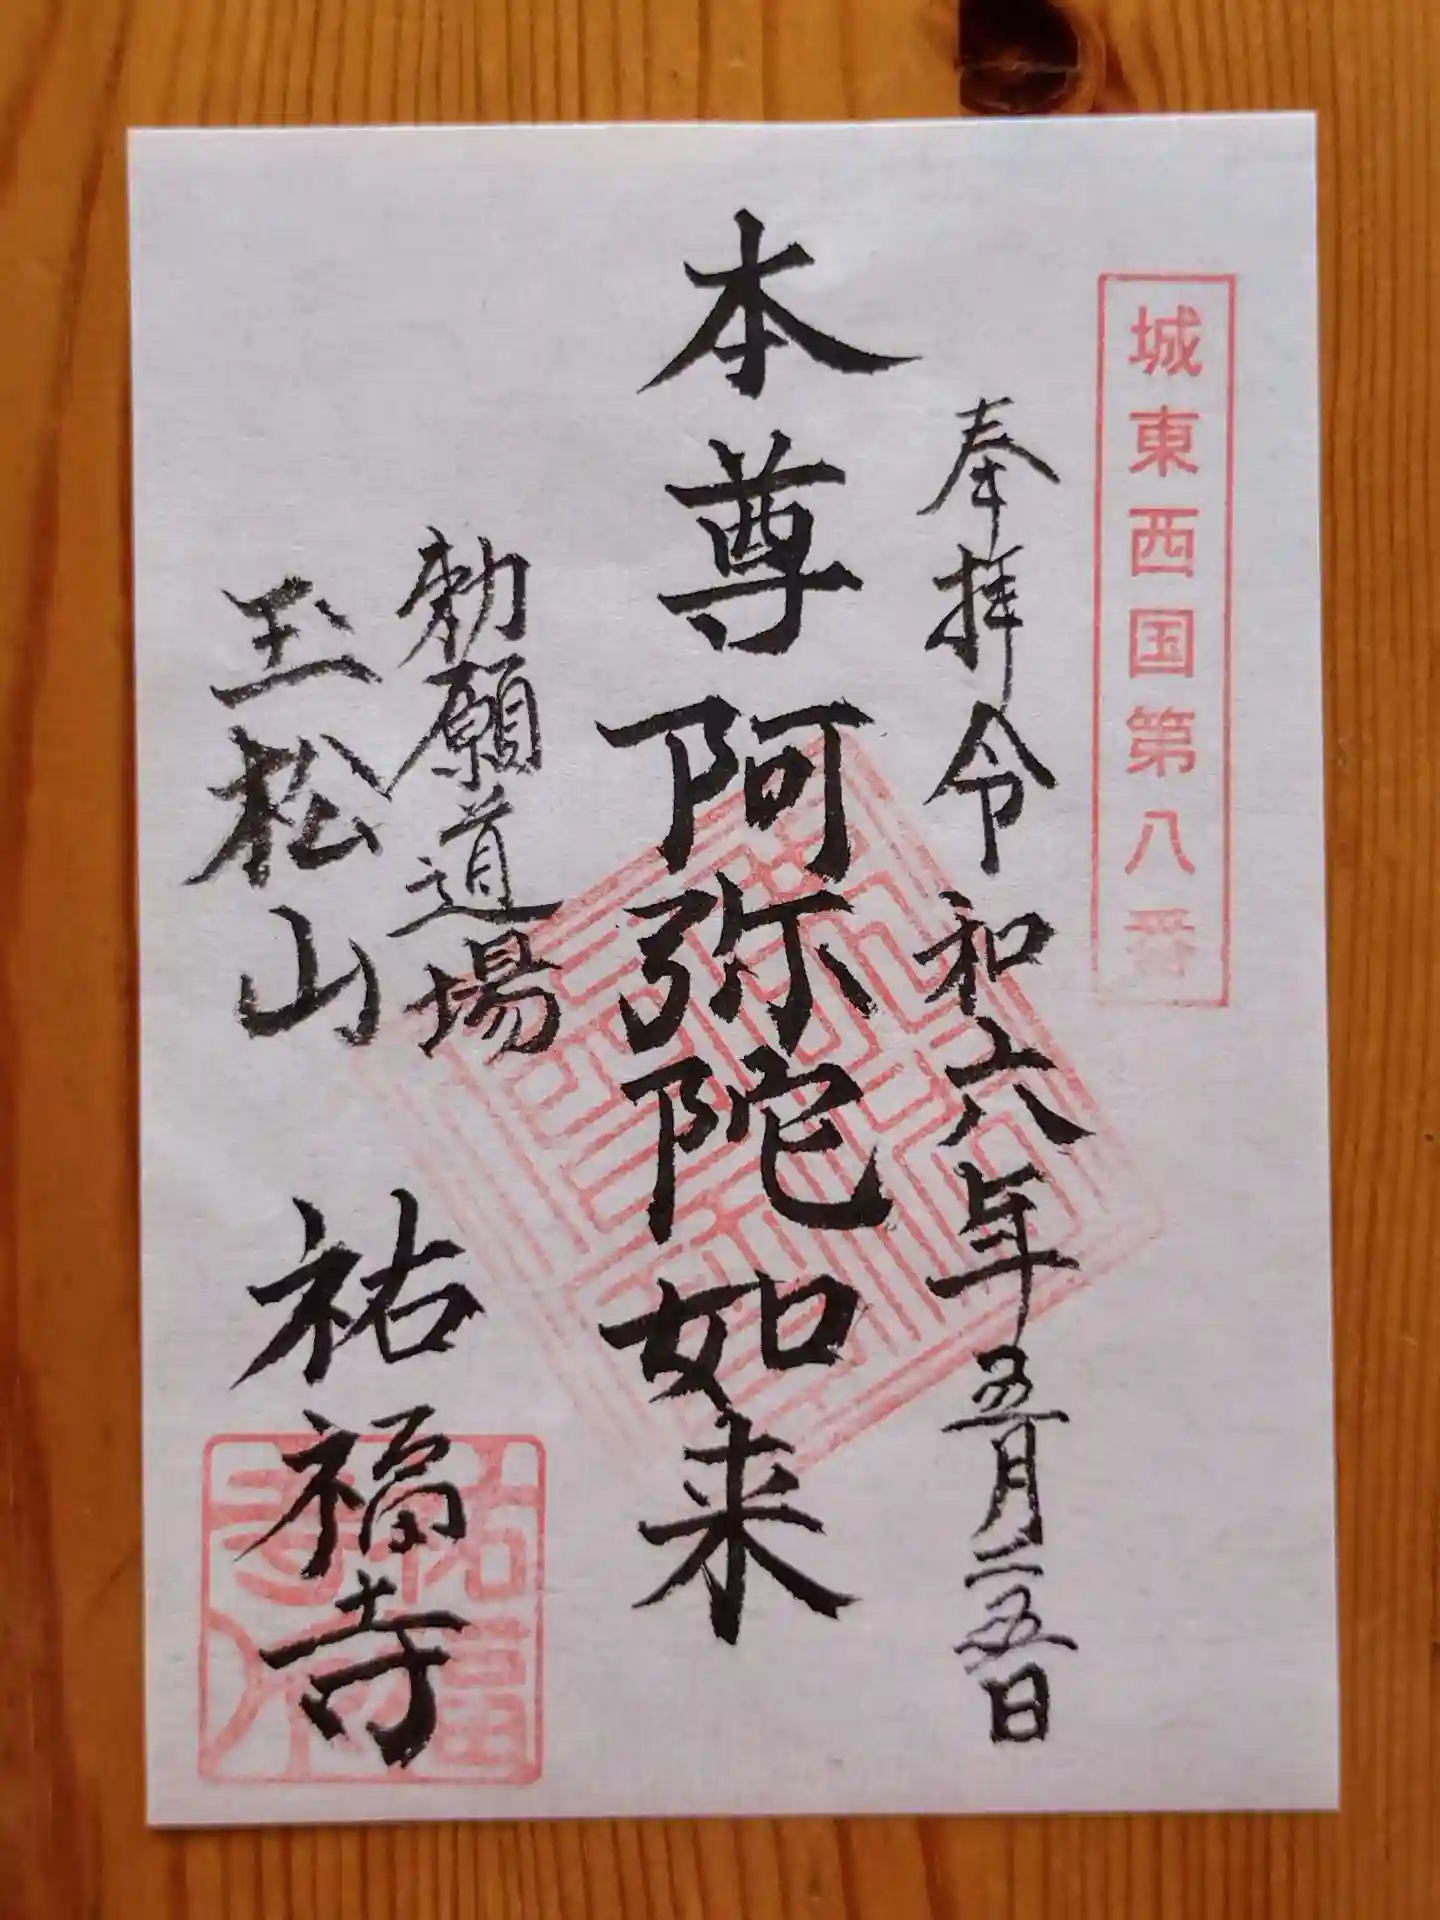 城東西国第八番
奉拝 令和六年五月二五日
本尊 阿弥陀如来
勅願道場
玉松山 祐福寺
祐福寺印